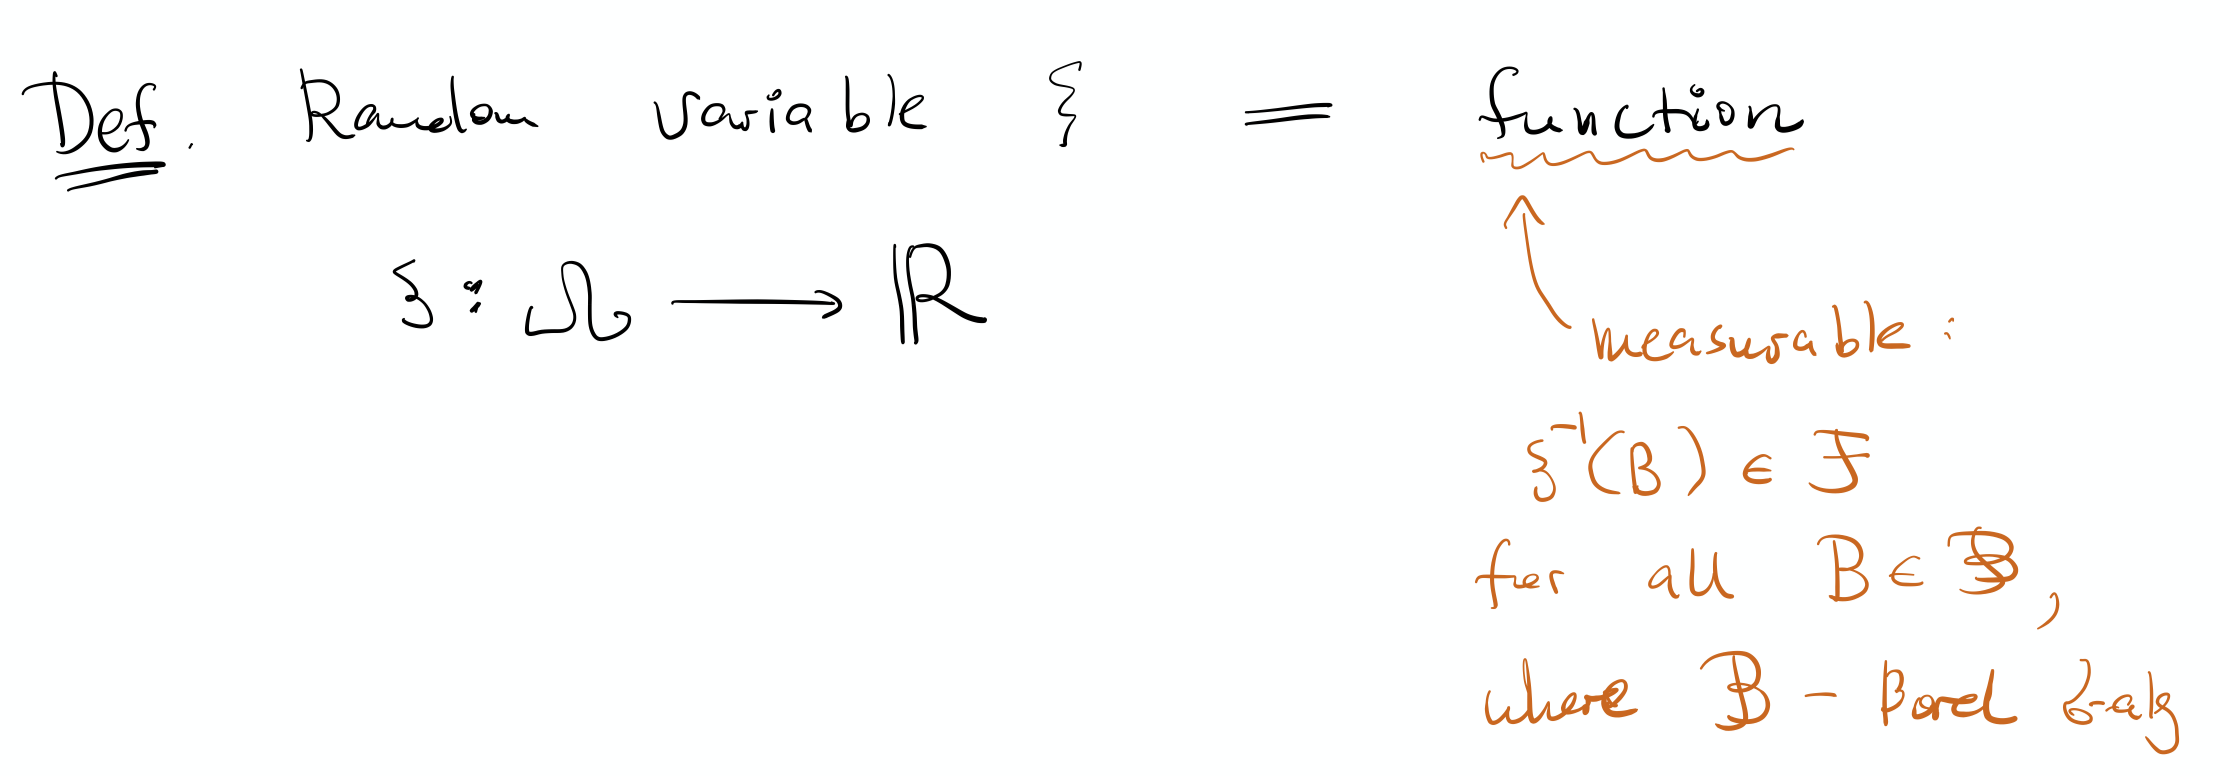 Def. Random variable ξ = function
ξ : Ω ⟶ ℝ
measurable :
ξ⁻¹(B) ∈ ℱ
for all B ∈ ℬ,
where ℬ - Borel σ-alg